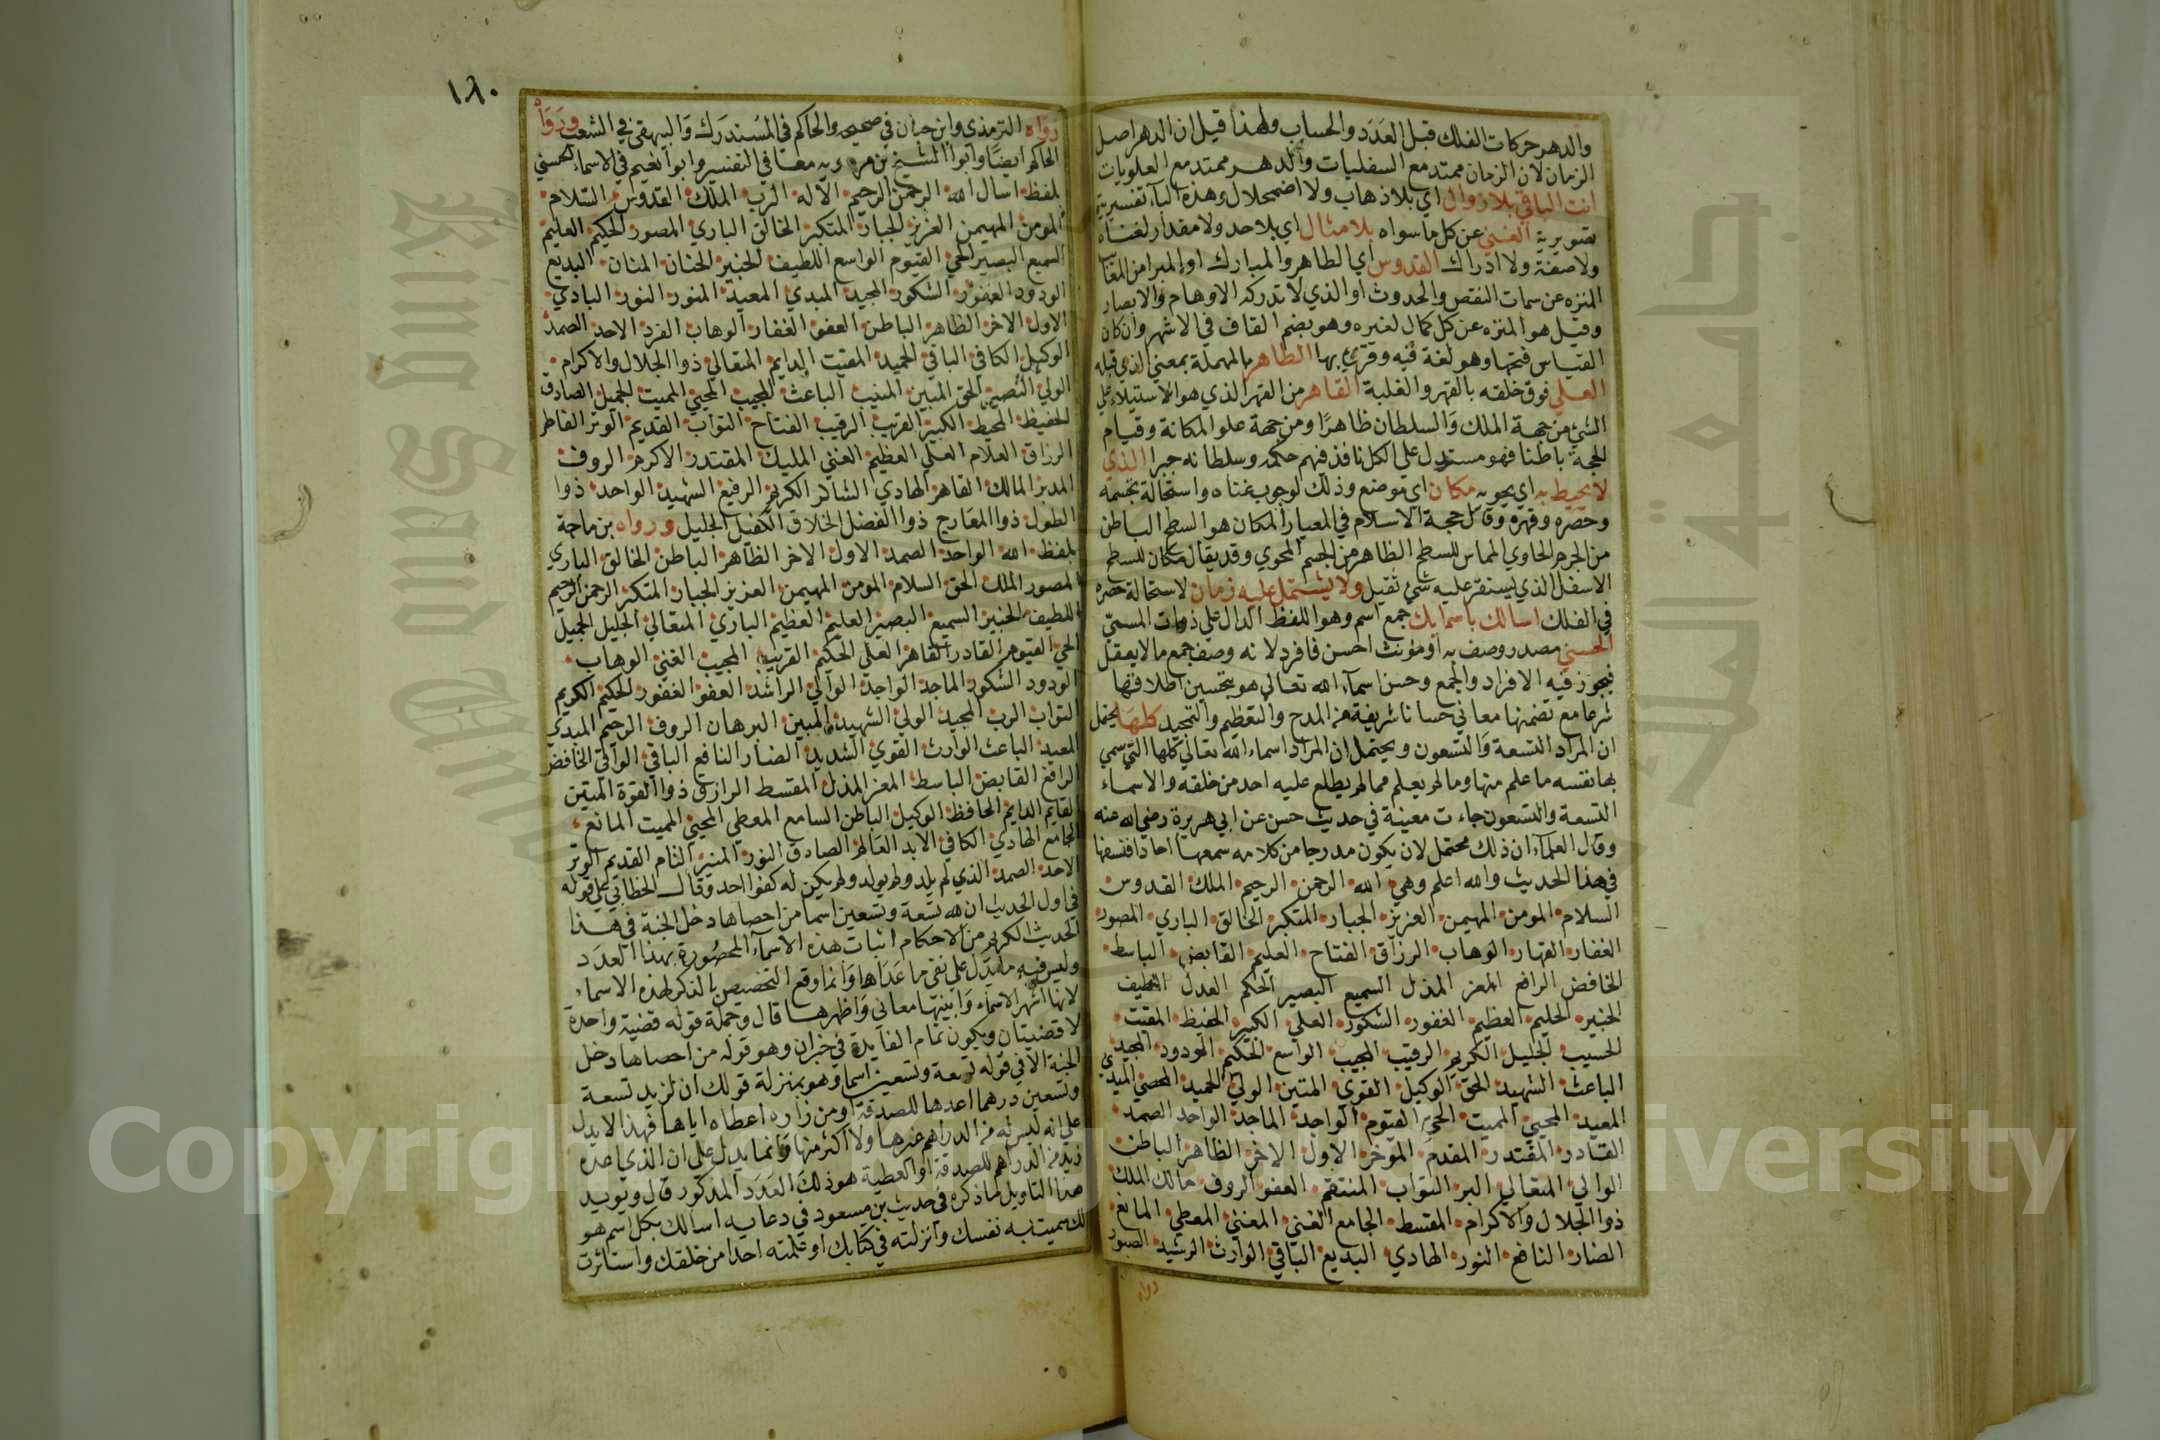 والدهر حركات الفلك قبل العَدَد والحساب ولهذا قيل ان الدهر اصل
الزمان لان الزمان ممتد مع السفليات والدهر ممتد مع العلويات
انت الباقي بلا زوال اي بلا ذهاب ولا اضمحلال وهذه الباء تفسيرية
تصويرية الغني عن كل ما سواه بلا مثال اي بلا حد ولا مقدار لغناه
ولا صفة ولا ادراك القدوس اي الطاهر والمبارك او المبرا من المعايب
المنزه عن سمات النقص والحدوث او الذي لا تدركه الاوهام والابصار
وقيل هو المنزه عن كل كمال لغيره وهو بضم القاف في الاشهر وان كان
القياس فتحها وهو لغة فيه وقرئ بها الطاهر بالمهملة بمعني الذي قبله
العلي فوق خلقه بالقهر والغلبة القاهر من القهر الذي هو الاستيلاء علي
الشئ من جهة الملك والسلطان ظاهرًا ومن جهة علو المكانة وقيام
الحجة باطنا فهو مستدل علي الكل نافذ فيهم حكمه وسلطانه جبرا الذي
لا يحيط به اي يحويه مكان اي موضع وذلك لوجوب غناه واستحالة تجسمه
وحصره وقهره وقال حجة الاسلام في المعيار المكان هو السطح الباطن
من الجرم الحاوي المماس للسطح الظاهر من الجسم المحوي وقد يقال مكان للسطح
الاسفل الذي يستقر عليه شئ ثقيل ولا يشتمل عليه زمان لاستحالة حصره
في الفلك اسالك باسمايك جمع اسم وهو اللفظ الدال علي ذوات المسمي
الحسني مصدر وصف به او مؤنث احسن فافرد لانه وصف جمع ما لا يعقل
فيجوز فيه الافراد والجمع وحسن اسماء الله تعالي هو بتحسين اطلاقها
شرعا مع تضمنها معاني حسانا شريفة من المدح والتعظيم والتمجيد كلها يحتمل
ان المراد التسعة والتسعون ويحتمل ان المراد اسماء الله تعالي كلها التي سمي
بها نفسه ما علم منها وما لم يعلم مما لم يطلع عليه احد من خلقه والاسماء
التسعة والتسعون جاءت معينة في حديث حسن عن ابي هريرة رضي الله عنه
وقال العلماء ان ذلك محتمل لان يكون مدرجا من كلامه سمعها احادا فنسقها
في هذا الحديث والله اعلم وهي الله الرحمن الرحيم الملك القدوس
السلام المومن المهيمن العزيز الجبار المتكبر الخالق الباري المصور
الغفار القهار الوهاب الرزاق الفتاح العليم القابض الباسط
الخافض الرافع المعز المذل السميع البصير الحكم العدل اللطيف
الخبير الحليم العظيم الغفور الشكور العلي الكبير الحفيظ المقيت
الحسيب الجليل الكريم الرقيب المجيب الواسع الحكيم الودود المجيد
الباعث الشهيد الحق الوكيل القوي المتين الولي الحميد المحصي المبدي
المعيد المحيي المميت الحي القيوم الواحد الماجد الواحد الصمد
القادر المقتدر المقدم الموخر الاول الاخر الظاهر الباطن
الوالي المتعالي البر التواب المنتقم العفو الروف مالك الملك
ذوا الجلال والاكرام المقسط الجامع الغني المغني المعطي المانع
الضار النافع النور الهادي البديع الباقي الوارث الرشيد الصبور
رواه
١٨٠
رواه الترمذي وابن حبان في صحيحه والحاكم في المستدرك والبيهقي في الشعب ورواه
الحاكم ايضا وابوا الشيخ بن مردويه معا في التفسير وابوا نعيم في الاسماء الحسني
بلفظ اسال الله الرحمن الرحيم الاله الرب الملك القدوس السلام
المومن المهيمن العزيز الجبار المتكبر الخالق الباري المصور الحكيم العليم
السميع البصير الحي القيوم الواسع اللطيف الخبير الحنان المنان البديع
الودود الغفور الشكور المجيد المبدي المعيد المنور النور البادي
الاول الاخر الظاهر الباطن العفو الغفار الوهاب الفرد الاحد الصمد
الوكيل الكافي الباقي الحميد المقيت الدايم المتعالي ذوا الجلال والاكرام
الولي النصير الحق المبين المنيب الباعث المجيب المحيي المميت الجميل الصادق
الحفيظ المحيط الكبير القريب الرقيب الفتاح التواب القديم الوتر الفاطر
الرزاق العلام العلي العظيم الغني المليك المقتدر الاكرم الروف
المدبر المالك القاهر الهادي الشاكر الكريم الرفيع الشهيد الواحد ذوا
الطول ذوا المعارج ذوا الفضل الخلاق الكفيل الجليل ورواه بن ماجة
بلفظ الله الواحد الصمد الاول الاخر الظاهر الباطن الخالق الباري
المصور الملك الحق السلام المومن المهيمن العزيز الجبار المتكبر الرحمن الرحيم
اللطيف الخبير السميع البصير العليم العظيم الباري المتعالي الجليل الجميل
الحي القيوم القادر القاهر العلي الحكيم القريب المجيب الغني الوهاب
الودود الشكور الماجد الواجد الوالي الراشد العفو الغفور الحكيم الكريم
التواب الرب المجيد الولي الشهيد المبين البرهان الروف الرحيم المبدي
المعيد الباعث الوارث القوي الشديد الضار النافع الباقي الواقي الخافض
الرافع القابض الباسط المعز المذل المقسط الرازق ذوا القوة المتين
القايم الدايم الحافظ الوكيل الباطن السامع المعطي المحيي المميت المانع
الجامع الهادي الكافي الابد العالم الصادق النور المنير التام القديم الوتر
الاحد الصمد الذي لم يلد ولم يولد ولم يكن له كفوا احد وقال الخطابي علي قوله
في اول الحديث ان لله تسعة وتسعين اسما من احصاها دخل الجنة في هذا
الحديث الكريم من الاحكام اثبات هذه الاسماء المحصورة بهذا العدد
وليس فيه ما يدل علي نفي ما عداها وانما وقع التخصيص بالذكر لهذه الاسماء
لانها اشهر الاسماء وابينها معاني واظهرها قال وجملة قوله قضية واحدة
لا قضيتان ويكون تمام الفايدة في خبر ان وهو قوله من احصاها دخل
الجنة الا في قوله تسعة وتسعين اسما وهو بمنزلة قولك ان لزيد تسعة
وتسعين درهما اعدها للصدقة او من زاره اعطاه اياها فهذا لا يدل
علي انه ليس له من الدراهم غيرها ولا اكثر منها وانما يدل علي ان الذي اعده
زيد من الدراهم للصدقة او العطية هو ذلك العدد المذكور قال ويويد
هذا التاويل ما ذكره في حديث بن مسعود في دعايه اسالك بكل اسم هو
لك سميت به نفسك وانزلته في كتابك او علمته احدا من خلقك واستاثرت
Copyright © King Saud University
King Saud University
جامعة الملك سعود